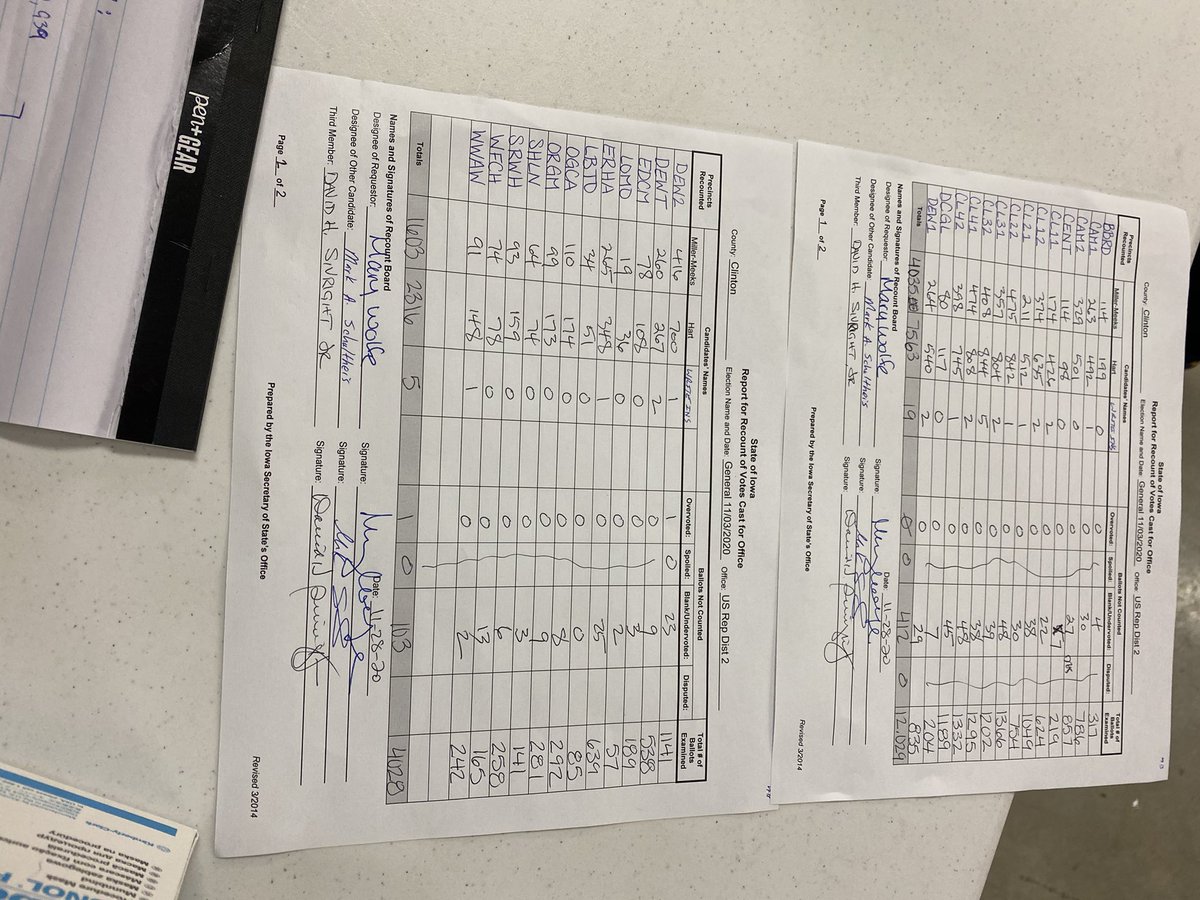 State of Iowa
Report for Recount of Votes Cast for Office
County: Clinton Election Name and Date: General 11/03/2020 Office: US Rep Dist 2
Precincts Recounted Candidates' Names Ballots Not Counted Total # of Ballots Examined
Miller-Meeks Hart WRITE INS Overvoted: Spoiled: Blank/Undervoted: Disputed:
BBRD 114 199 0 0 4 317
CAM1 263 492 1 0 30 786
CAM2 329 501 0 0 27 857
CENT 114 98 0 0 7 219
CL11 174 426 2 0 22 624
CL12 374 635 2 0 38 1049
CL21 211 512 1 0 30 754
CL22 475 842 1 0 48 1366
CL31 357 804 2 0 39 1202
CL32 408 844 5 0 38 1295
CL41 474 808 2 0 48 1332
CL42 398 745 1 0 45 1189
DCGL 80 117 0 0 7 204
DEN1 264 540 2 0 29 835
Totals 4035 7563 9 0 0 412 0 12,029
Names and Signatures of Recount Board
Designee of Requestor: Mary Wolfe Signature: Date: 11-28-20
Designee of Other Candidate: Mark A. Schultheis Signature:
Third Member: DAVID H. SINRIGHT JR Signature:
Page 1 of 2 Prepared by the Iowa Secretary of State's Office Revised 3/2014
State of Iowa
Report for Recount of Votes Cast for Office
County: Clinton Election Name and Date: General 11/03/2020 Office: US Rep Dist 2
Precincts Recounted Candidates' Names Ballots Not Counted Total # of Ballots Examined
Miller-Meeks Hart WRITE INS Overvoted: Spoiled: Blank/Undervoted: Disputed:
DEN2 416 700 1 1 0 23 1141
DEWT 260 267 2 0 9 538
EDCM 78 108 0 0 3 189
LOMD 19 36 0 0 2 57
ERHA 265 348 1 0 25 639
LBTD 34 51 0 0 0 85
OGCA 110 174 0 0 8 292
ORGM 99 173 0 0 9 281
SHLN 64 74 0 0 3 141
SRWH 93 159 0 0 6 258
WFCH 74 78 0 0 13 165
WWAW 91 148 1 0 2 242
Totals 1603 2316 5 1 0 103 4028
Names and Signatures of Recount Board
Designee of Requestor: Mary Wolfe Signature: Date: 11-28-20
Designee of Other Candidate: Mark A. Schultheis Signature:
Third Member: DAVID H. SINRIGHT JR Signature:
Page 1 of 2 Prepared by the Iowa Secretary of State's Office Revised 3/2014
pen+GEAR
Kimberly-Clark